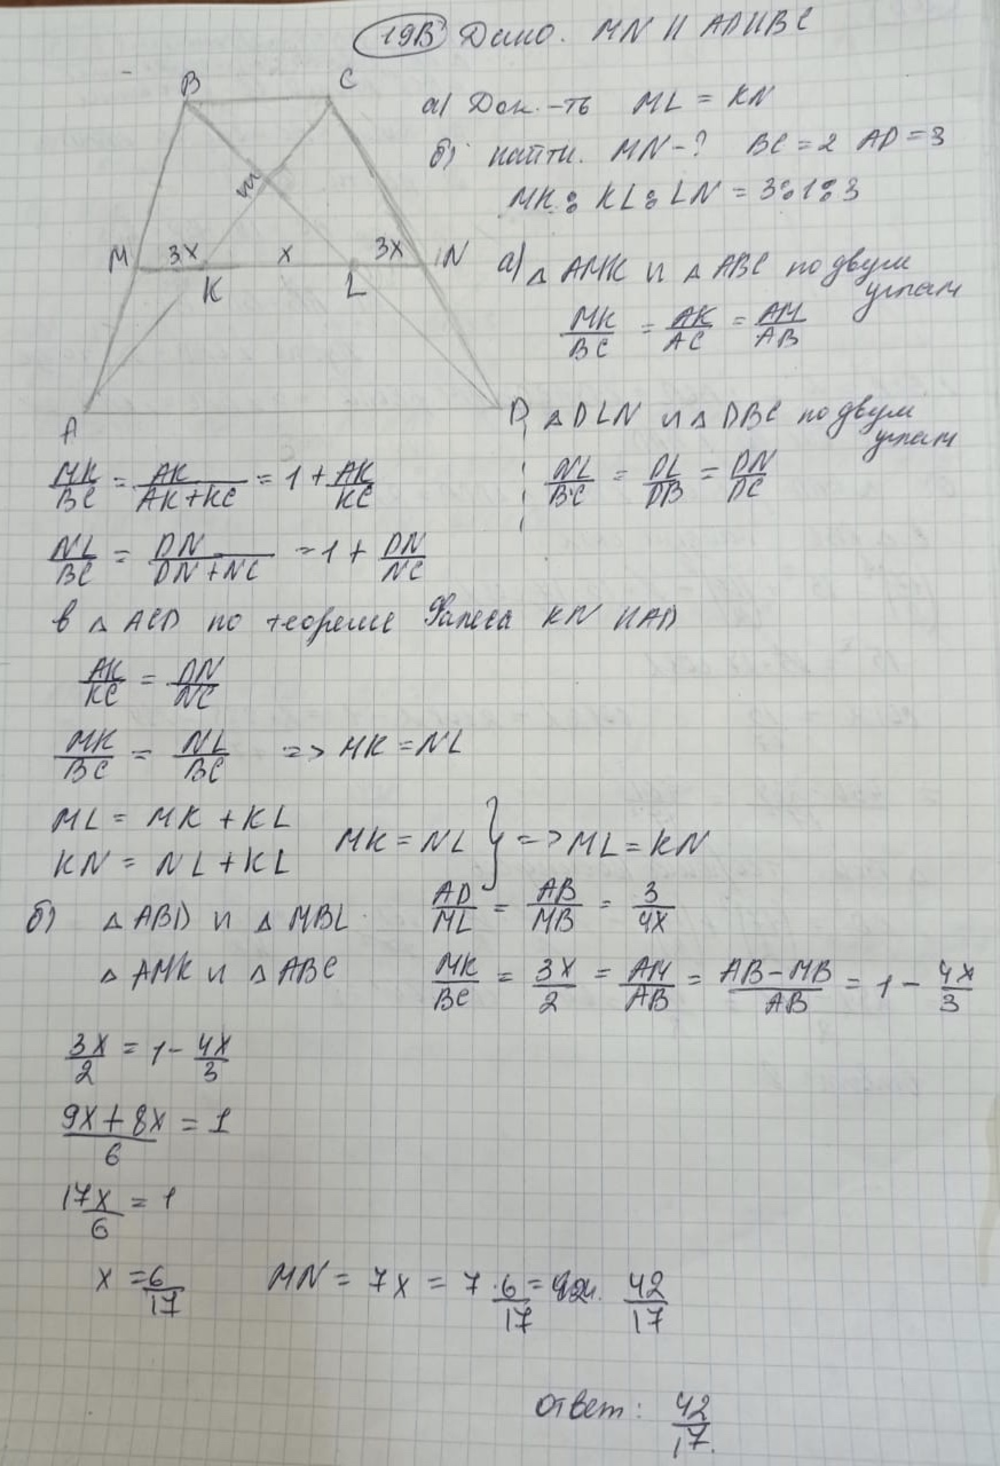 19В Дано. MN || AD || BC
B C
а) Док.-ть ML = KN
б) найти. MN - ? BC = 2 AD = 3
m
MK : KL : LN = 3 : 1 : 3
M 3x x 3x N
K L
A D
а) △ AMK и △ ABC по двум углам
MK/BC = AK/AC = AM/AB
△ DLN и △ DBC по двум углам
NL/BC = DL/DB = DN/DC
MK/BC = AK/AK+KC = 1 + AK/KC
NL/BC = DN/DN+NC = 1 + DN/NC
в △ ACD по теореме Фалеса KN || AD
AK/KC = DN/NC
MK/BC = NL/BC => MK = NL
ML = MK + KL
KN = NL + KL
MK = NL } => ML = KN
б) △ ABD и △ MBL AD/ML = AB/MB = 3/4x
△ AMK и △ ABC MK/BC = 3x/2 = AM/AB = AB-MB/AB = 1 - 4x/3
3x/2 = 1 - 4x/3
9x+8x/6 = 1
17x/6 = 1
x = 6/17 MN = 7x = 7·6/17 = 42/17
ответ: 42/17.